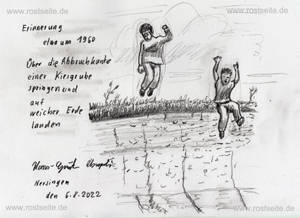 www.rostseite.de
www.rostseite.de
Erinnerung
etwa um 1960
Über die Abbruchkante
einer Kiesgrube
springen und
auf
weicher Erde
landen
Nersingen
den 6.8.2022
www.rostseite.de
www.rostseite.de